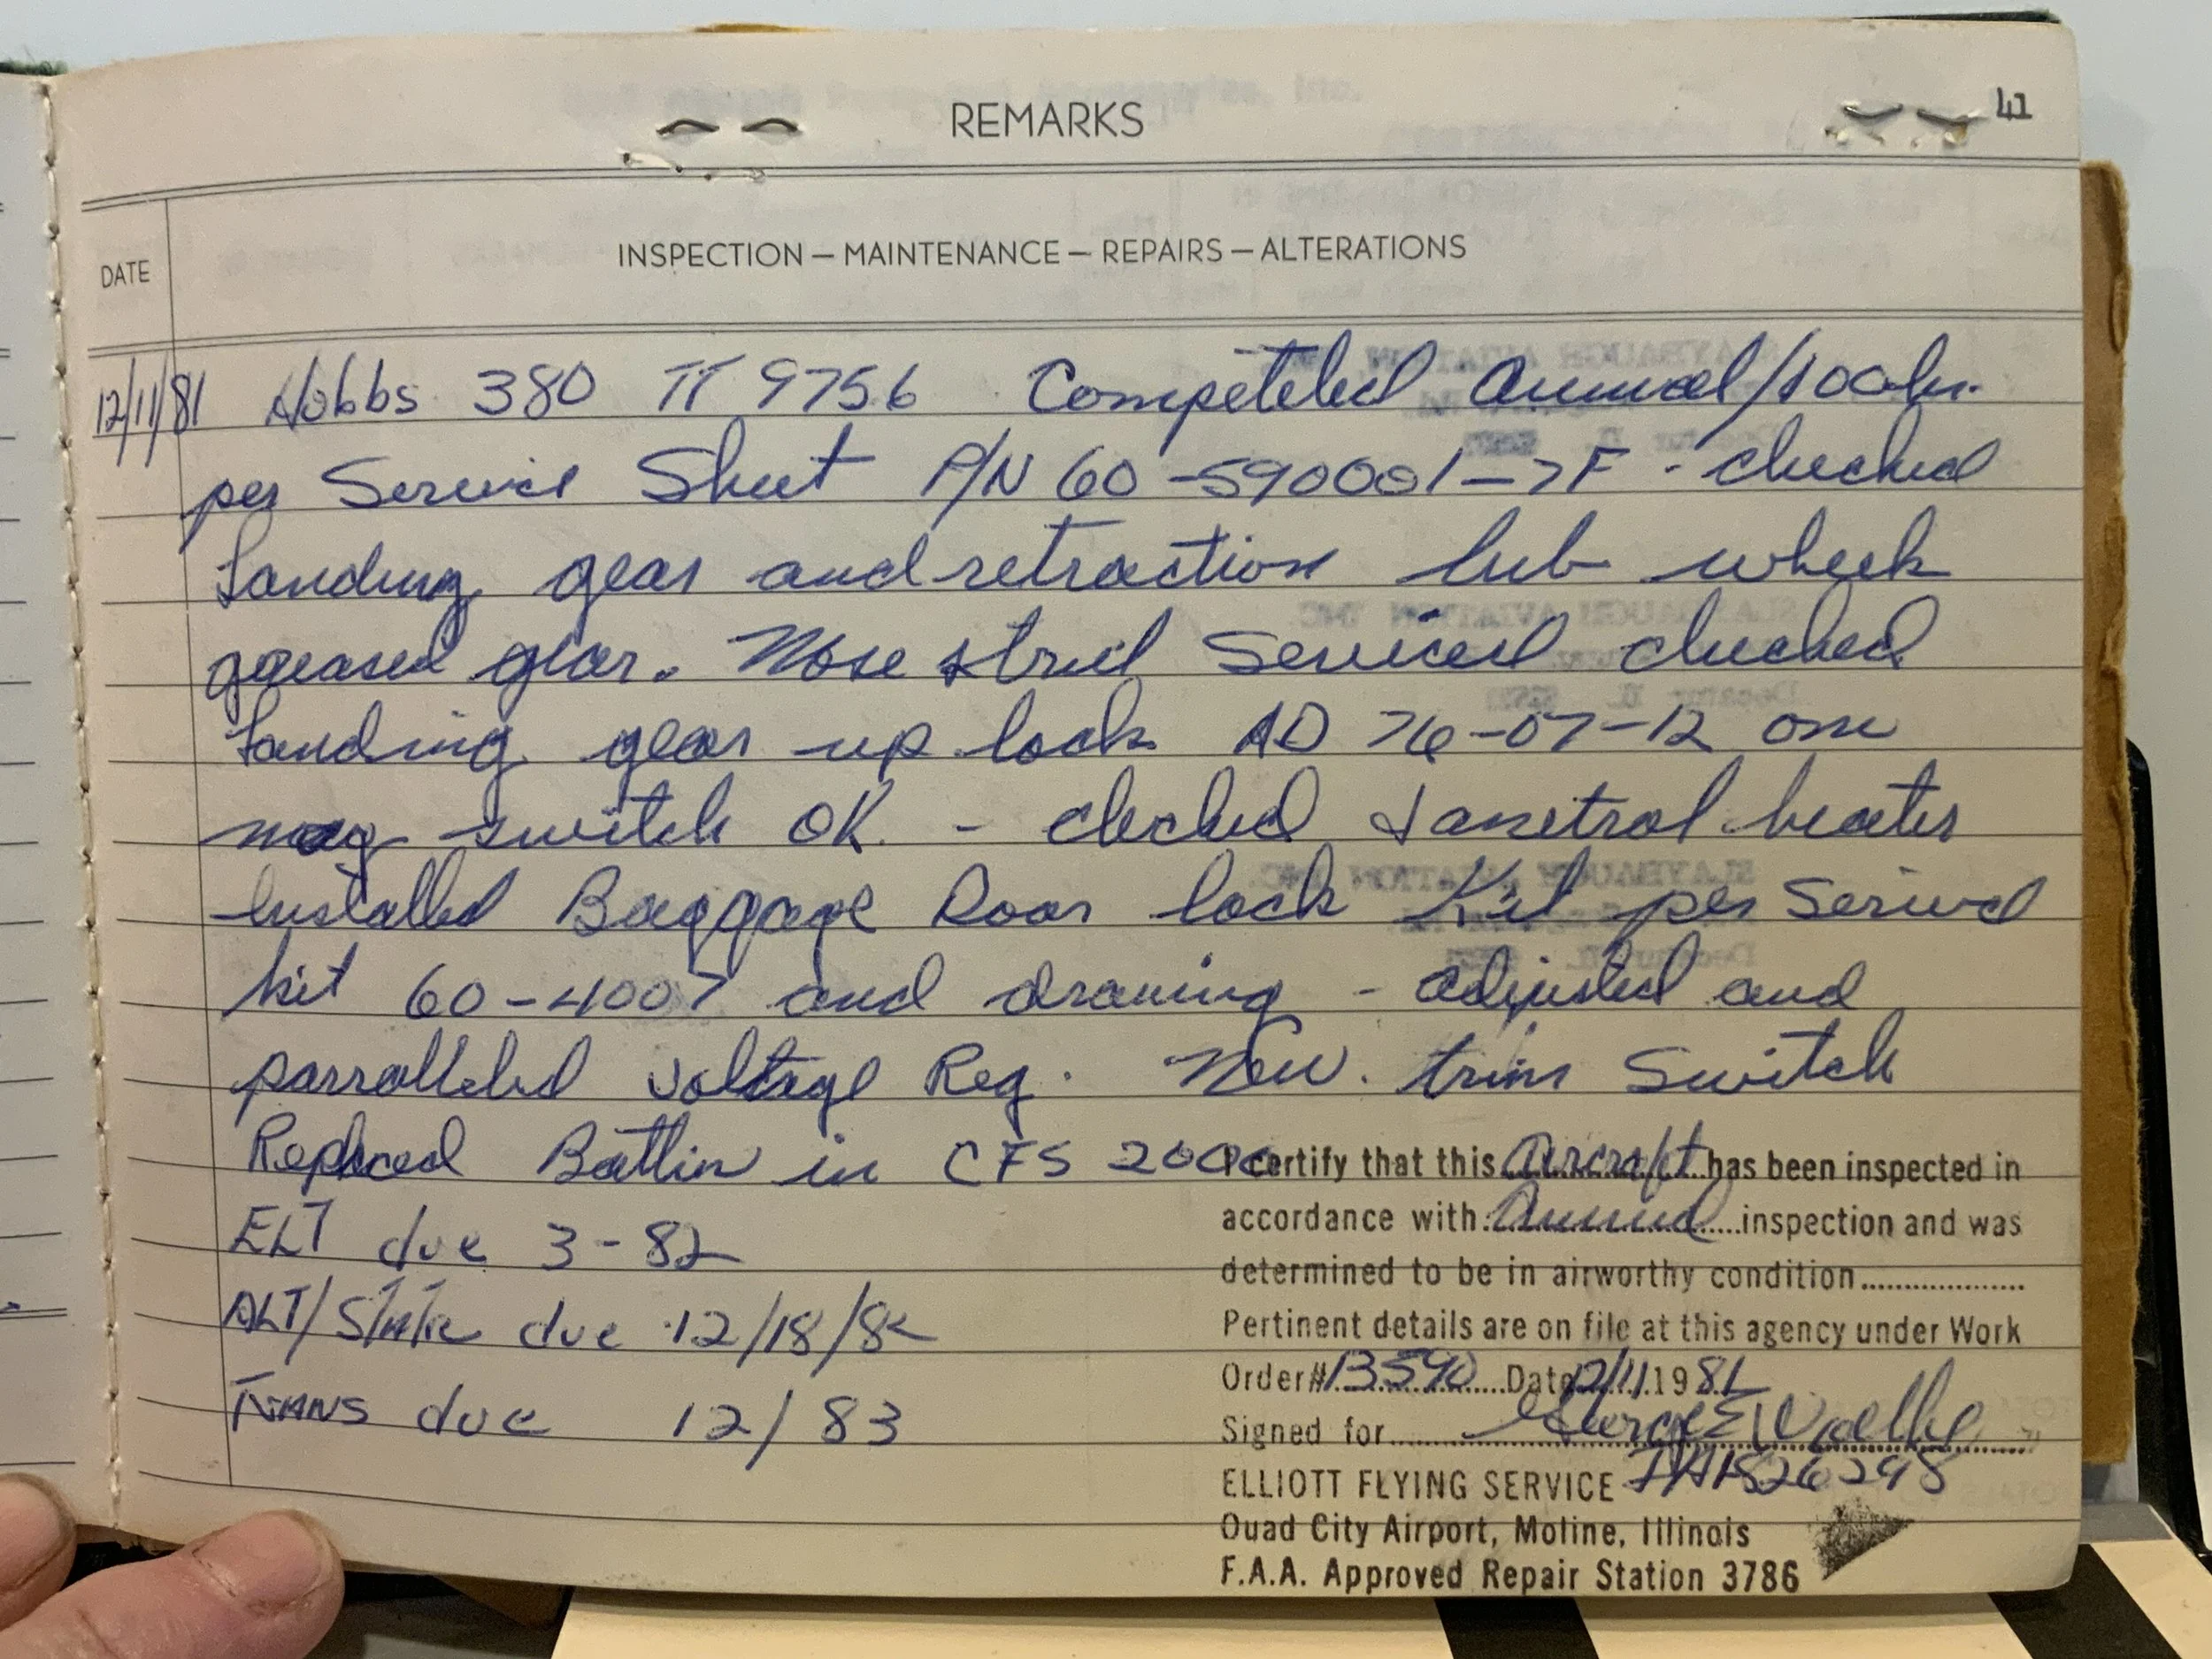 REMARKS
41
DATE
INSPECTION — MAINTENANCE — REPAIRS — ALTERATIONS
12/11/81 Hobbs 380 TT 9756 Competeled Annual/100hr.
per Service Sheet P/N 60-590001-7F - checked
Landing gear and retraction lub wheek
greased gear. Nose strut Serviced checked
Landing gear up lock AD 76-07-12 on
mag switch OK. - checked Janitrol heater
Installed Baggage Door lock Kit per Service
kit 60-4007 and drawing - adjusted and
parralleled voltage Reg. New. trim Switch
Replaced Batteries in CFS 2000
ELT due 3-82
ALT/Static due 12/18/82
TRANS due 12/83
I certify that this Aircraft has been inspected in
accordance with Annual inspection and was
determined to be in airworthy condition
Pertinent details are on file at this agency under Work
Order# 13590 Date 12/11 1981
Signed for George E
ELLIOTT FLYING SERVICE
Quad City Airport, Moline, Illinois
F.A.A. Approved Repair Station 3786